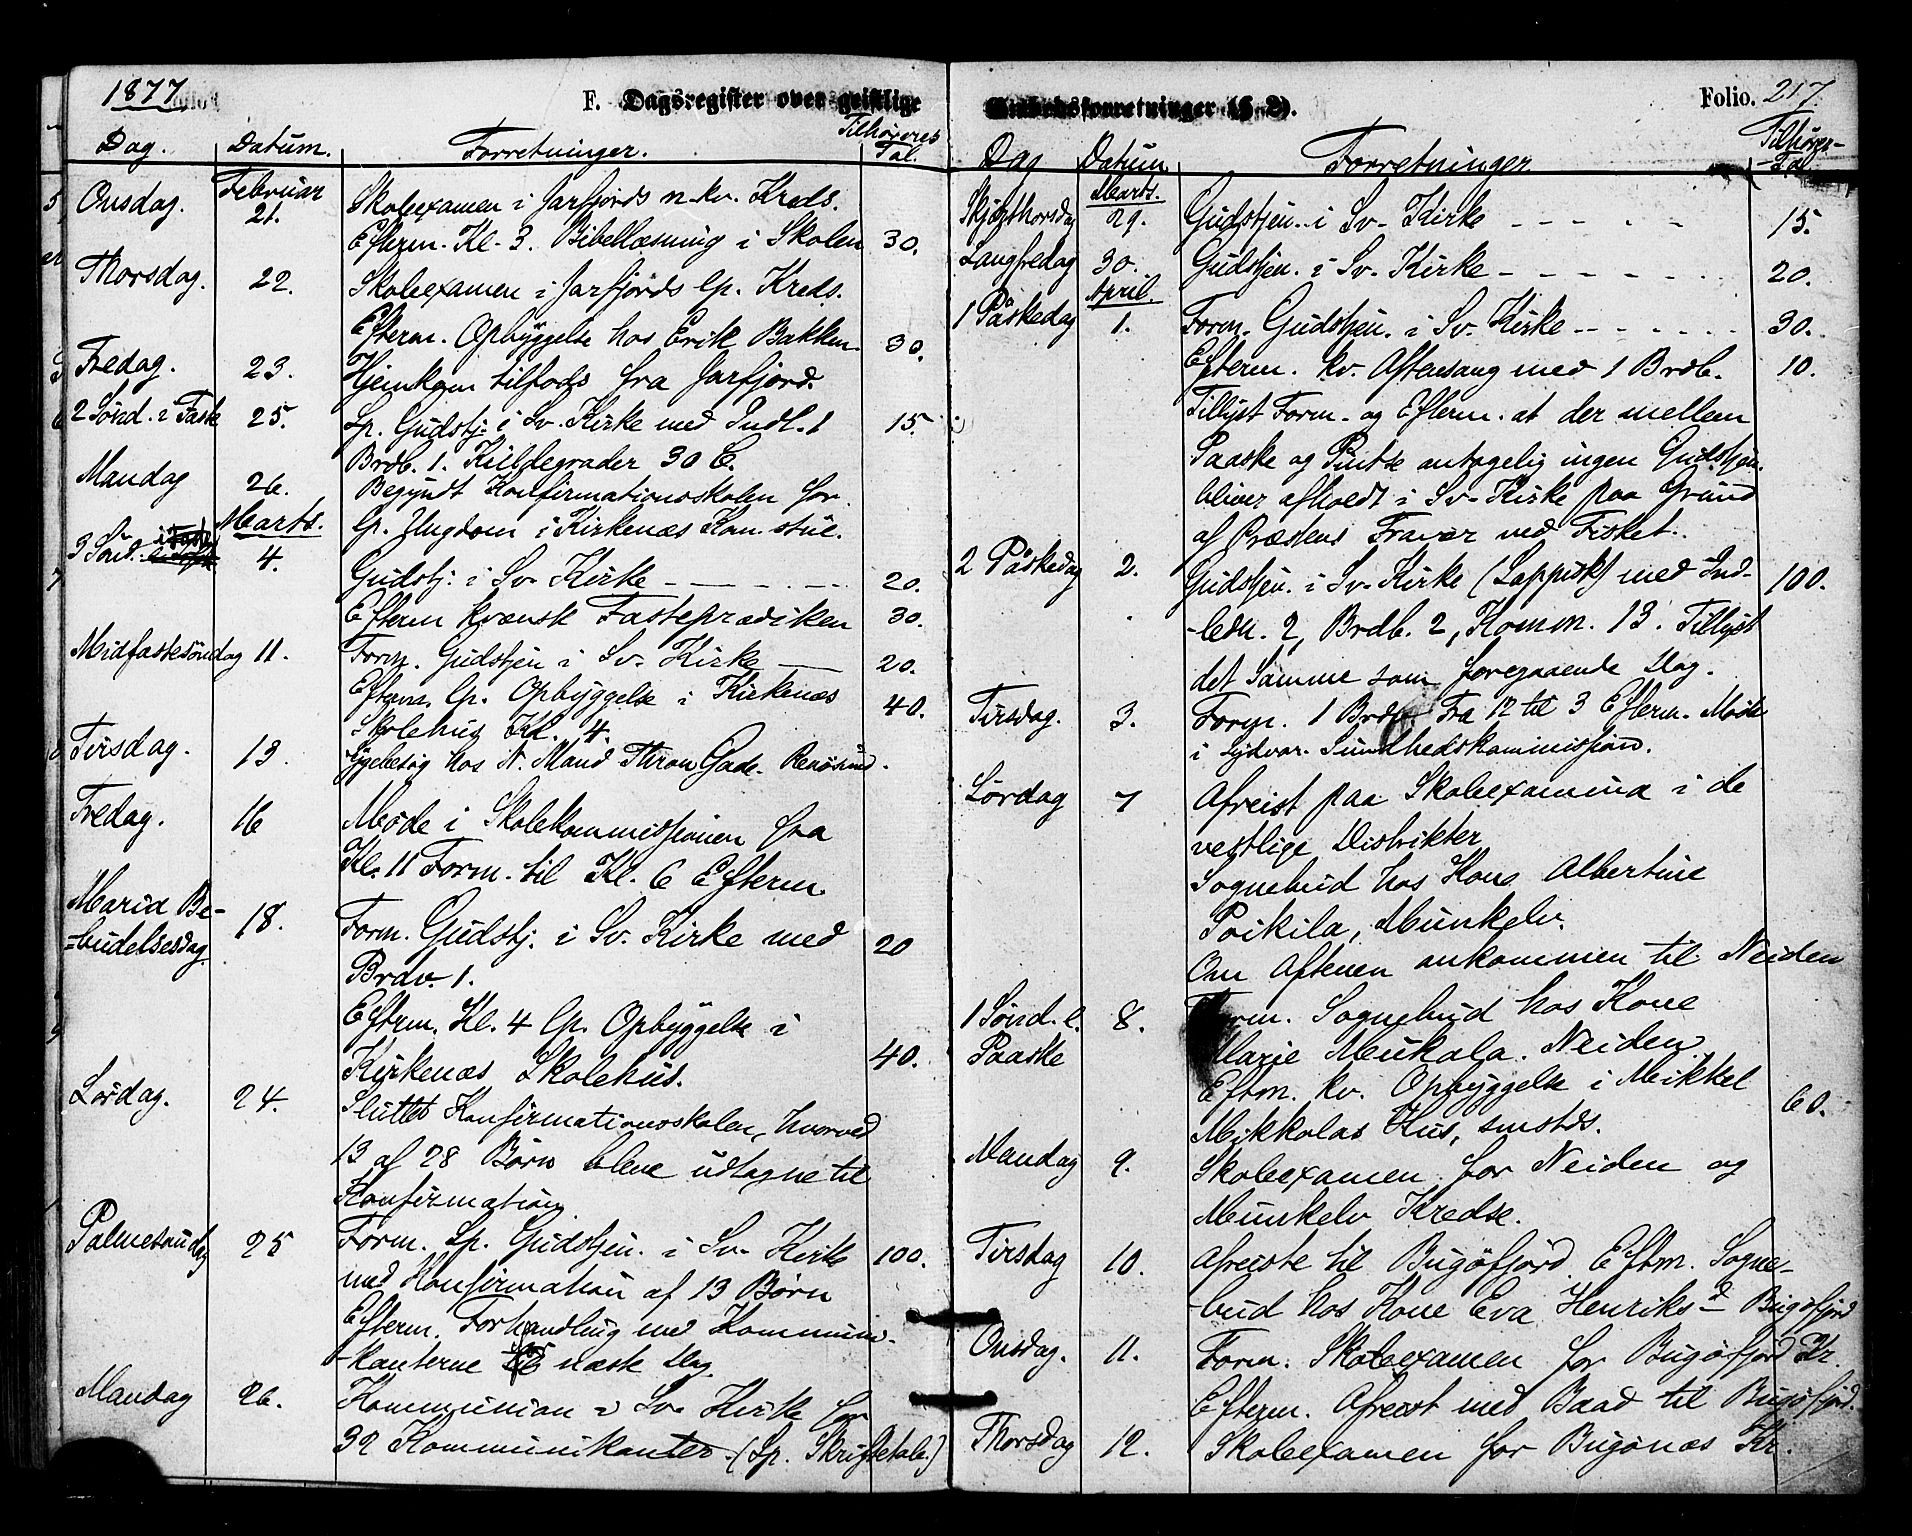 1877.
F. Dagsregister over geistlige
Dag. Datum. Forretninger. Tilhøreres Tal.
Onsdag. Februar 21. Skoleexamen i Jarfjords n. kv. Kreds.
Efterm. Kl. 3. Bibellæsning i Skolen 30.
Thorsdag. 22. Skoleexamen i Jarfjords lp. Kreds.
Efterm. Opbyggelse hos Erik Bakken. 30.
Fredag. 23. Hjemkom tilfods fra Jarfjord.
2 Sønd. i Faste 25. Lp. Gudstj. i Sv. Kirke med Indl. 1 15.
Brdb. 1. Kuldegrader 30 C.
Mandag 26. Begyndt Konfirmationsskolen for
lp. Ungdom i Kirkenæs Kom. stue.
3 Sønd. i Faste Marts. 4. Gudstj. i Sv. Kirke - - - - - 20.
Efterm kvænsk Fasteprædiken 30.
Midfastesøndag 11. Form. Gudstjen i Sv. Kirke - - 20.
Efterm. lp. Opbyggelse i Kirkenæs 40.
Skolehus Kl. 4.
Tirsdag. 13. Sygebesøg hos N. Mand Thron Gade. Renøsund.
Fredag. 16 Møde i Skolekommissionen fra
Kl. 11 Form. til Kl. 6 Efterm.
Mariæ Be-
=budelsesdag. 18. Form. Gudstj. i Sv. Kirke med 20
Brdv. 1.
Efterm. Kl. 4 lp. Opbyggelse i
Kirkenæs Skolehus. 40.
Lördag. 24. Sluttet Konfirmationsskolen, hvorved
13 af 28 Børn bleve udtagne til
Konfirmation
Palmesøndag 25 Form. Lp. Gudstjen. i Sv. Kirke 100.
med Konfirmation af 13 Børn
Efterm. Forhandling med Kommuni-
-kanterne næste Dag
Mandag 26. Kommunion i Sv. Kirke for
32 Kommunikanter. (Lp. Skriftetale.)
Embedsforretninger (§ 2).
Folio. 217.
Dag Datum Forretninger. Tilhører-
-Tal.
Skjærthorsdag Marts. 29. Gudstjen. i Sv. Kirke - - - - - 15.
Langfredag 30. Gudstjen. i Sv. Kirke - - - - - - - 20.
1 Påskedag April. 1. Form. Gudstjen. i Sv. Kirke - - - - - - 30.
Efterm. kv. Aftensang med 1 Brdb. 10.
Tillyst Form. og Efterm. at der mellem
Paaske og Pintse antagelig ingen Gudstjen.
bliver afholdt i Sv. Kirke paa Grund
af Præstens Fravær ved Fisket.
2 Påskedag 2. Gudstjen. i Sv. Kirke (Lappisk) med Ind- 100.
-ledn. 2, Brdb. 2, Komm. 13. Tillyst
det Samme som foregaaende Dag.
Tirsdag. 3. Form. 1 Brdp Fra 12 til 3 Efterm. Møde
i Sydvar. Sundhedskommission.
Lørdag 7 Afreist paa Skoleexamina i de
vestlige Distrikter
Sognebud hos Kone Albertine
Poikila, Munkelv.
Om Aftenen ankommen til Neiden
1 Sønd. e. 8. Form. Sognebud hos Kone
Paaske Marie Mukala. Neiden.
Eftm. kv. Opbyggelse i Mikkel 60.
Mikkolas Hus, smstds.
Mandag 9. Skoleexamen for Neiden og
Munkelv Kredse.
Tirsdag 10. Afreiste til Bugöfjörd. Eftm. Sogne-
-bud hos Kone Eva Henriksd Bugöfjörd
Onsdag. 11. Form. Skoleexamen for Bugöfjörd Kr.
Efterm. Afreist med Baad til Bugöfjörd.
Thorsdag 12. Skoleexamen for Bugönæs Kr.